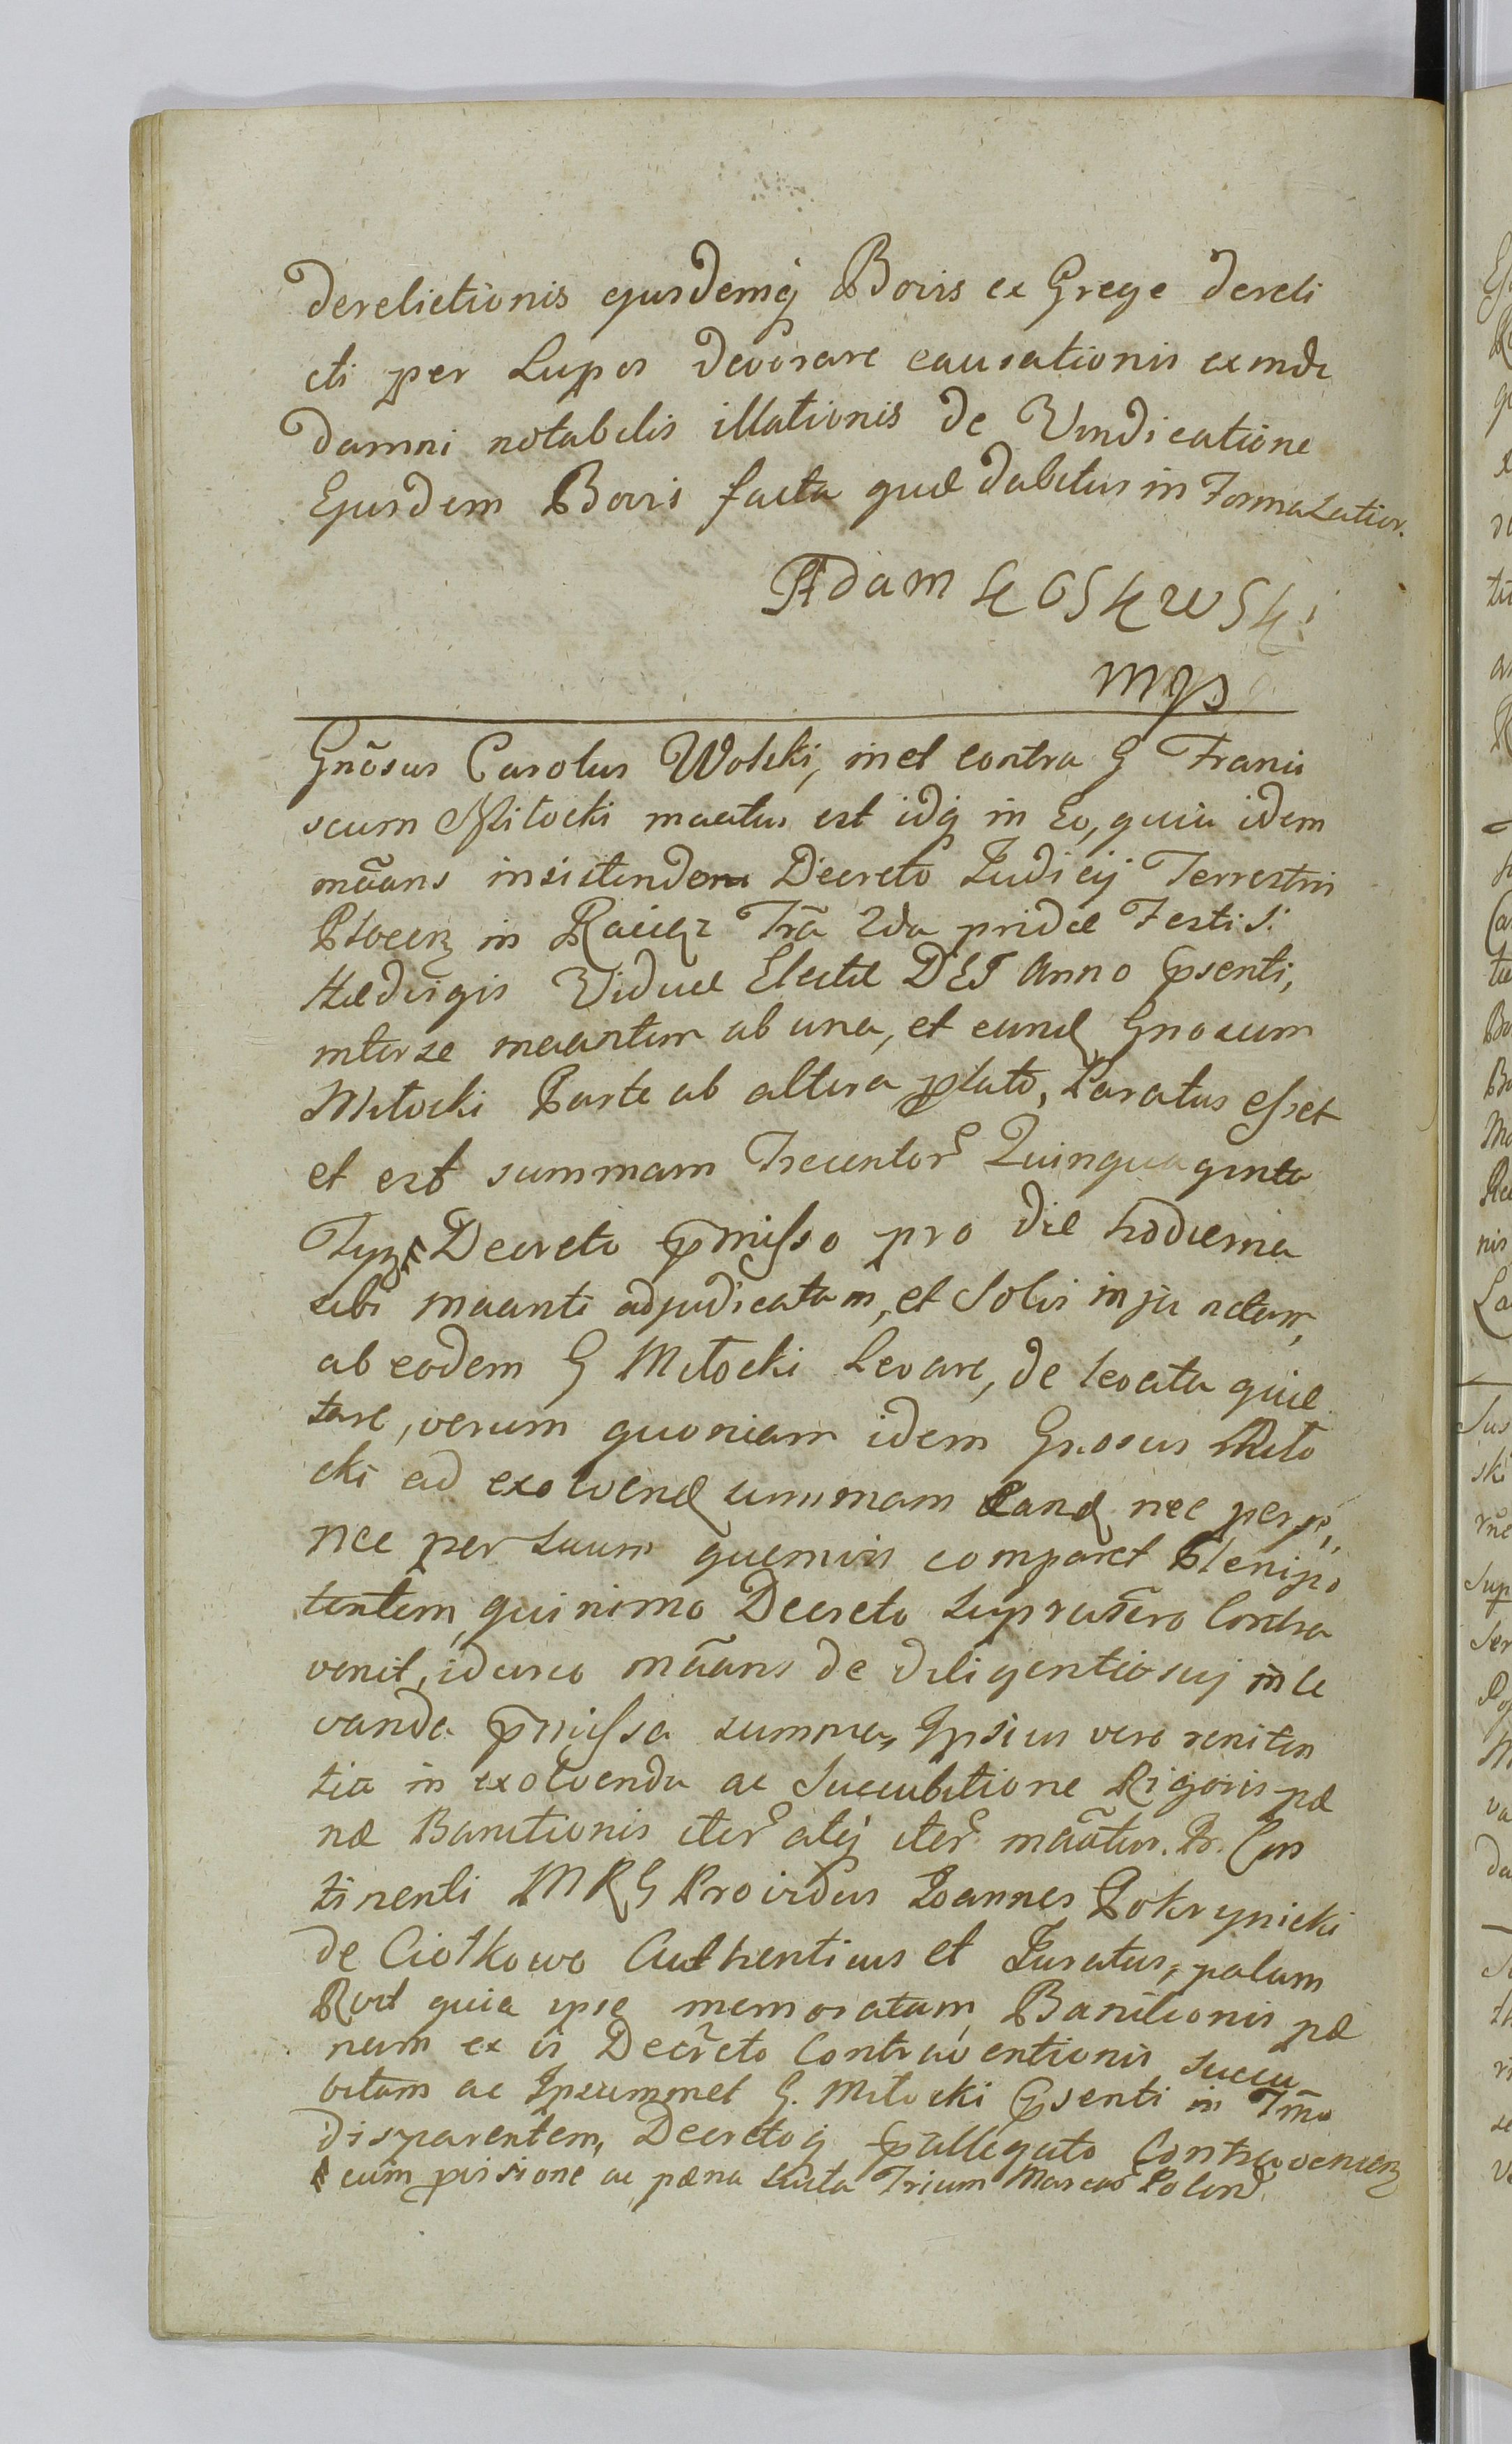 derelictionis ejusdemq Bovis ex Grege dereli
cti per Lupos devorare causationis exinde
damni notabilis illationis de Vindicatione
Ejusdem Bovis facta quæ dabitur in Forma Latior.
Adam
mps
Gñosus Carolus Wolski, in et contra G Franci
scum Miłocki maatus est idq in Eo, quia idem
mãans insistendo Decreto Judicij Terrestris
Plocen in Raciąz Trã 2da pridie Festi S.
Hædvigis Viduæ Electæ DEJ Anno psenti,
inter se maantem ab una, et eund Gnosum
Miłocki Parte ab altera plato, Paratus esset
et est summam Trecentor Quinquaginta
Decreto pmisso pro die hodierna
sibi maanti adjudicatam, et Solvi injunctam,
ab eodem G Miłocki Levare, de levata quie
tare, verum quoniam idem Gnosus Miło
cki ad exolvend summam eand nec per se,
nec per suum quemvis comparet Plenipo
tentem, quinimo Decreto supratãcto Contra
venit, idcirco mãans de diligentia sui in le
vanda pmissa summa, Ipsius vero reniten
tia in exolvenda ac Succubitione Rigoris pæ
næ Banitionis iter atq iter mãatur. Pr. Con
tinenti MRG Providus Joannes Pokrynicki
de Ciołkowo Authenticus et Juratus, palam
Rect quia ipse memoratam Banitionis pæ
nam ex vi Decreto Contraventionis succu
bitam ac Ipsummet G. Miłocki psenti in Tmno
disparentem, Decretoq pallegato Contravenien
cum pisione ac pæna Luita Trium Marcar Polon